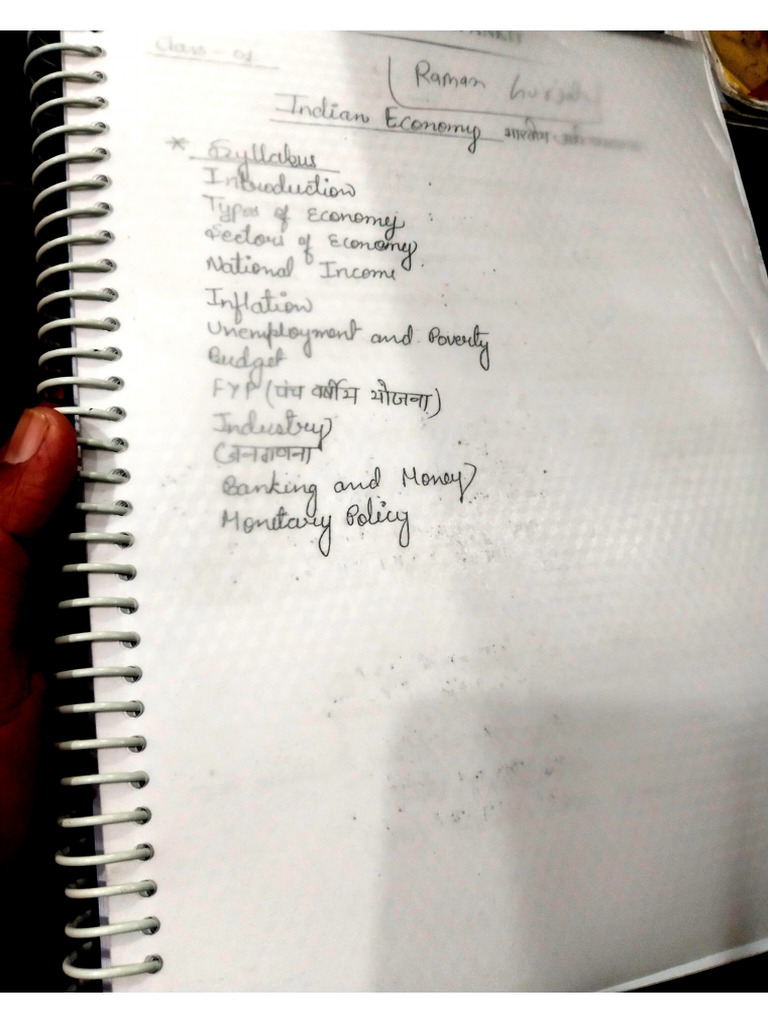 Class - 01
Raman
Indian Economy भारतीय
* Syllabus
Introduction
Types of Economy
Sectors of Economy
National Income
Inflation
Unemployment and Poverty
Budget
FYP (पंच वर्षीय योजना)
Industry
जनगणना
Banking and Money
Monetary Policy